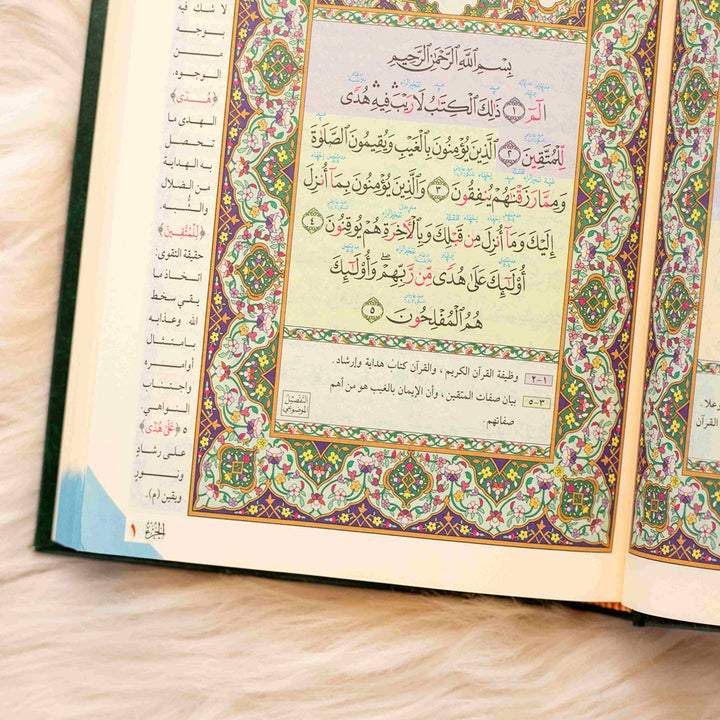 بِسْمِ ٱللَّهِ ٱلرَّحْمَٰنِ ٱلرَّحِيمِ
الٓمٓ ١ ذَٰلِكَ ٱلْكِتَٰبُ لَا رَيْبَ ۛ فِيهِ ۛ هُدًى
لِّلْمُتَّقِينَ ٢ ٱلَّذِينَ يُؤْمِنُونَ بِٱلْغَيْبِ وَيُقِيمُونَ ٱلصَّلَوٰةَ
وَمِمَّا رَزَقْنَٰهُمْ يُنفِقُونَ ٣ وَٱلَّذِينَ يُؤْمِنُونَ بِمَآ أُنزِلَ
إِلَيْكَ وَمَآ أُنزِلَ مِن قَبْلِكَ وَبِٱلْأٓخِرَةِ هُمْ يُوقِنُونَ ٤
أُو۟لَٰٓئِكَ عَلَىٰ هُدًى مِّن رَّبِّهِمْ ۖ وَأُو۟لَٰٓئِكَ
هُمُ ٱلْمُفْلِحُونَ ٥
١-٢ وظيفة القرآن الكريم، والقرآن كتاب هداية وإرشاد.
٣-٥ بيان صفات المتقين، وأن الإيمان بالغيب هو من أهم
صفاتهم.
التفصيل
الموضوعي
لا شك فيه
بوجه
من
الوجوه.
﴿هُدًى﴾
الهدى ما
تحصل
به الهداية
من الضلال
والشُّبه.
﴿لِلْمُتَّقِينَ﴾
حقيقة التقوى:
اتخاذ ما
يقي سخط
الله وعذابه
بامتثال
أوامره
واجتناب
النواهي.
٥ ﴿عَلَىٰ هُدًى﴾
على رشادٍ
ونورٍ
ويقين (م).
الجزء ١
القرآن